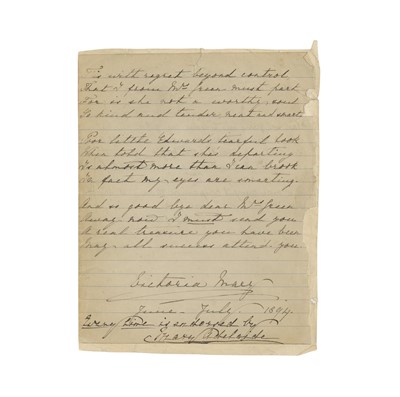 'Tis with regret beyond control
That I from Mrs Green must part
For is she not a worthy soul
So kind and tender neat and smart.
For little Edwards tearful look
When told that she's departing
Is almost more than I can brook
In fact my eyes are smarting.
And so good bye dear Mrs Green
Away now I must send you
A real treasure you have been
May all success attend you
Victoria Mary
June - July. 1894.
Every time is endorsed by
Mary Adelaide